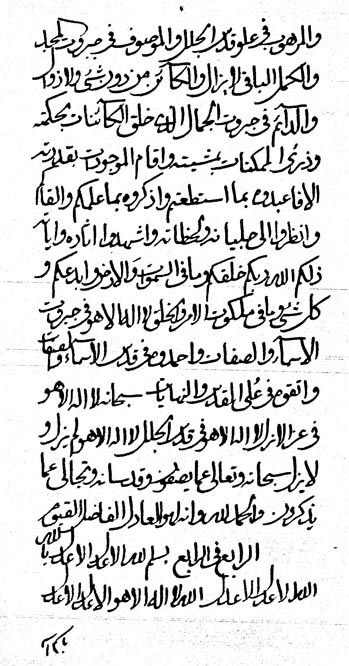 والمرهوب في علو قدس الجلال والموصوف في جبروت المجد
والكمال الباقي لا يزال والكائن من دون شيء ولا زوال
والدائم في جبروت الجمال الذي خلق الكائنات بحكمته
وذرء الممكنات بمشيته واقام الموجودات بقدرته
الا فاعبدوه بما استطعتم واذكروه بما علمكم
وانظروا الى واشهدوا اثاره واياته
ذلكم الله ربكم خلقكم وما في السموات والارض وابدعكم و
كل شيء وما في ملكوت الامر والخلق لا اله الا هو في جبروت
الاسماء والصفات واحد في قدس الاسماء والصفات
في على القدس والنهايات سبحانه لا اله الا هو
في عز الازل لا اله الا هو في قدس الجلال لا اله الا هو لم يزل و
لا يزال سبحانه وتعالى عما يصفون وقدسانه وتجالى عما
يذكرون والحمد لله وانه لهو العادل الفاضل القيوم
الرابع في الرابع بسم الله الاعدل الاعدل بالله
الله الاعدل الاعدل الله لا اله الا هو الاعدل الاعدل